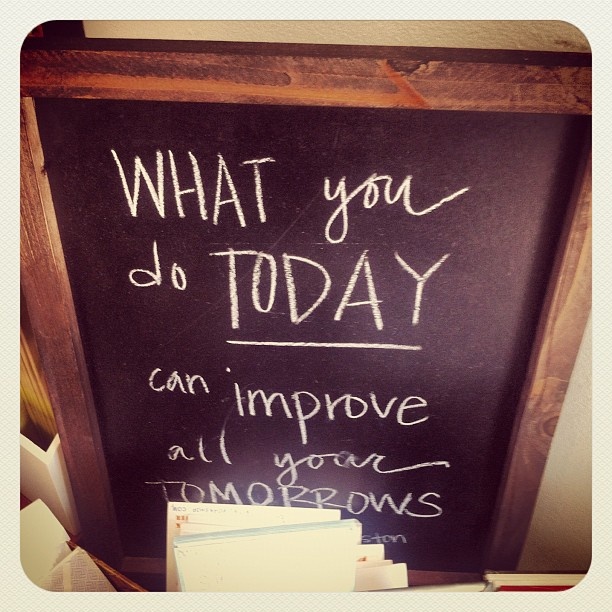 WHAT you
do TODAY
can improve
all your
TOMORROWS
ston